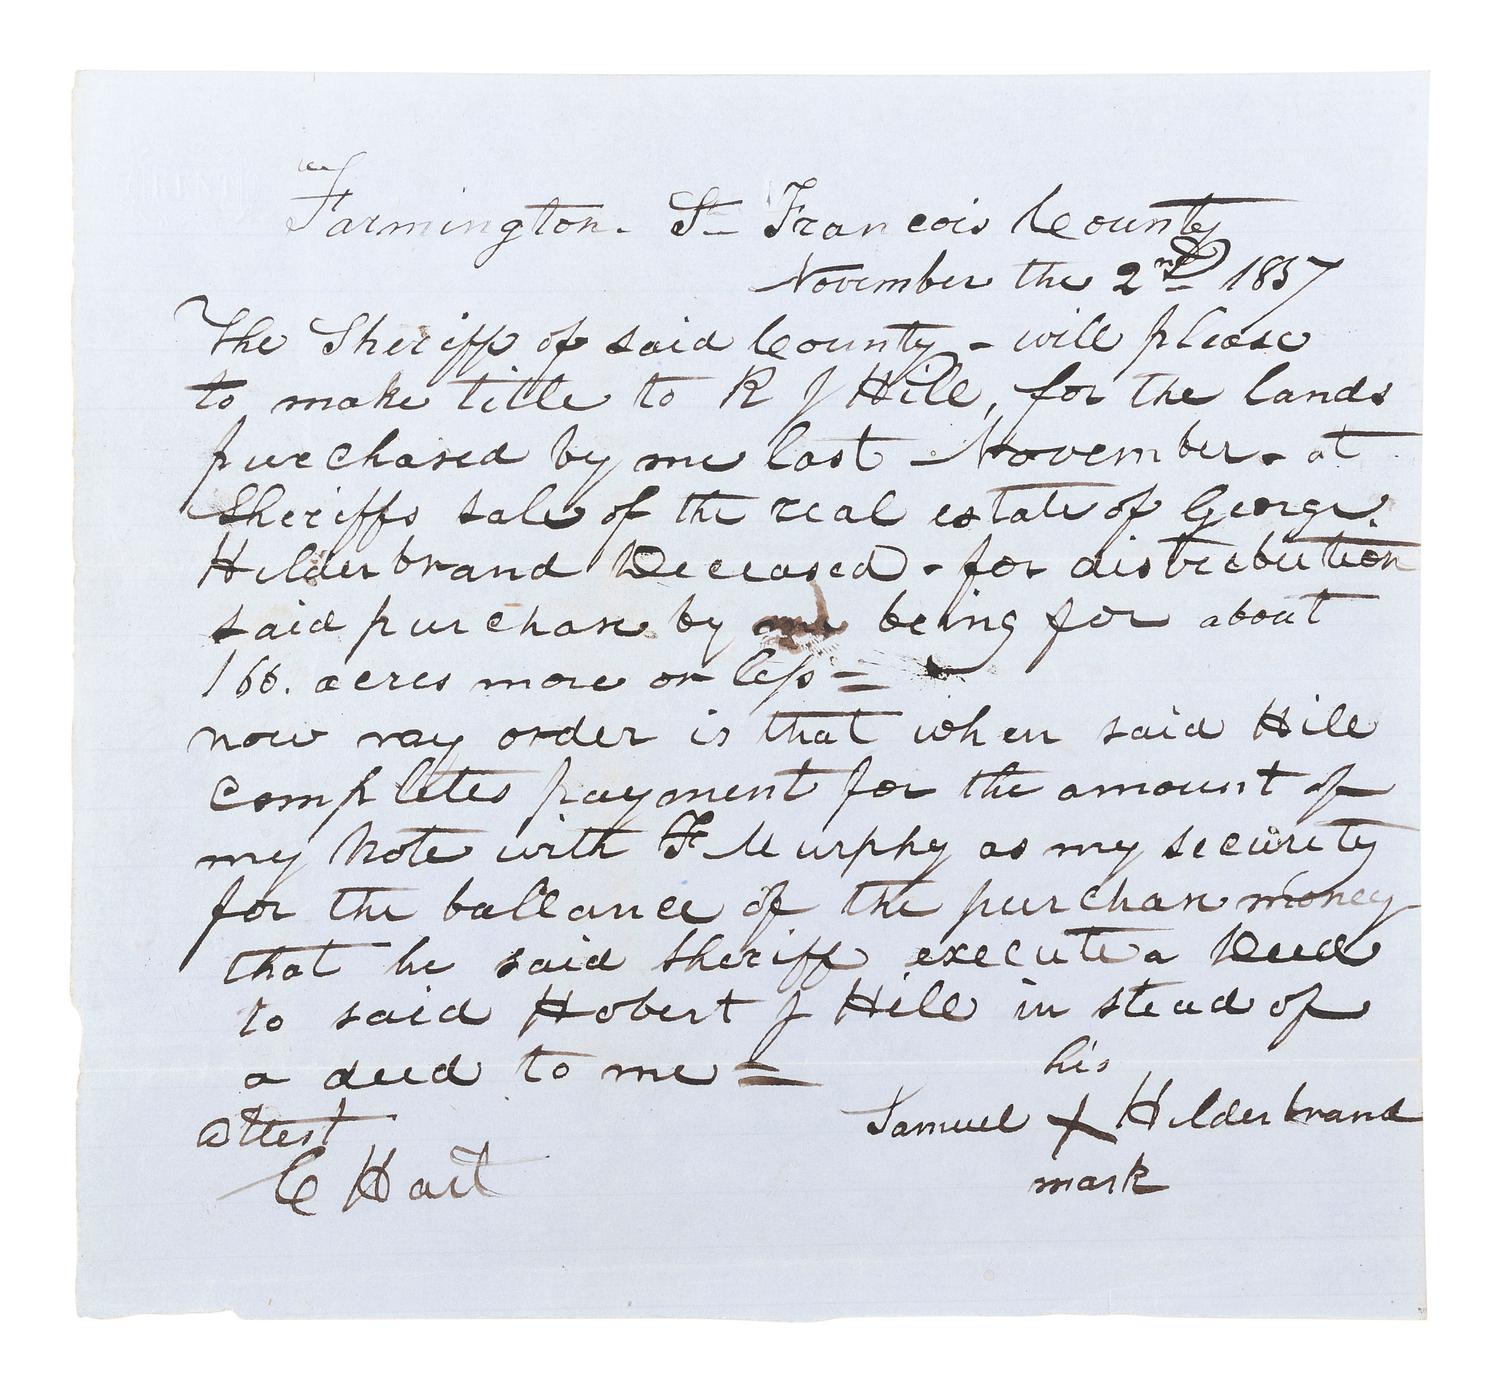 Farmington. St Francois County
November the 2nd 1857
The Sheriff of said County - will please
to make title to R J Hill, for the lands
purchased by me last November - at
Sheriffs sale of the real estate of George
Hilderbrand Deceased - for distrebution
said purchase by me being for about
166. acres more or less =
now my order is that when said Hill
completes payment for the amount of
my Note with F Murphy as my security
for the ballance of the purchase money
that he said Sheriff execute a Deed
to said Robert J Hill in stead of
a deed to me =
his
attest Samuel X Hilderbrand
mark
C Hart